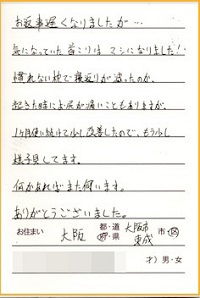 お返事遅くなりましたが…
気になっていた首こりはマシになりました!
慣れない枕で寝返りが減ったのか、
起きた時に上尻が痛いこともありますが、
1ヶ月使い続けて少し改善したので、もう少し
様子見してます。
何かあればまた伺います。
ありがとうございました。
お住まい 大阪 都・道・府・県 大阪市東成 市・区
才) 男・女